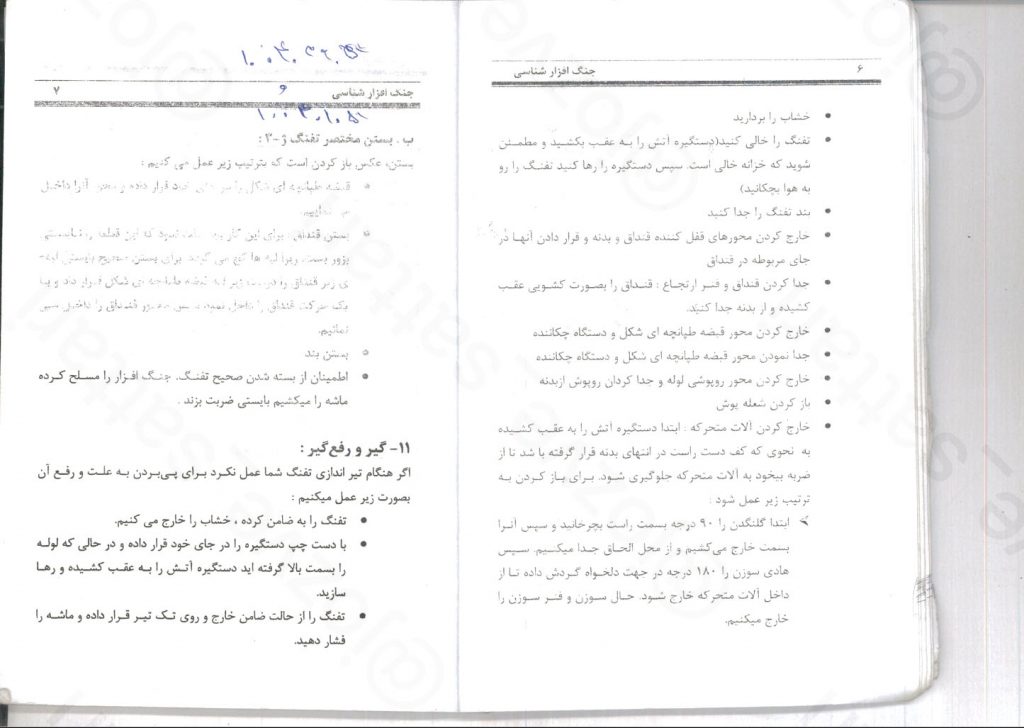 ۶
جنگ افزار شناسی
• خشاب را بردارید
• تفنگ را خالی کنید(دستگیره آتش را به عقب بکشید و مطمئن
شوید که خزانه خالی است. سپس دستگیره را رها کنید تفنگ را رو
به هوا بچکانید)
• بند تفنگ را جدا کنید
• خارج کردن محورهای قفل کننده قنداق و بدنه و قرار دادن آنها در
جای مربوطه در قنداق
• جدا کردن قنداق و فنر ارتجاع : قنداق را بصورت کشویی عقب
کشیده و از بدنه جدا کنید.
• خارج کردن محور قبضه طپانچه ای شکل و دستگاه چکاننده
• جدا نمودن محور قبضه طپانچه ای شکل و دستگاه چکاننده
• خارج کردن محور روپوشی لوله و جدا کردان روپوش ازبدنه
• باز کردن شعله پوش
• خارج کردن آلات متحرکه : ابتدا دستگیره آتش را به عقب کشیده
به نحوی که کف دست راست در انتهای بدنه قرار گرفته با شد تا از
ضربه بیخود به آلات متحرکه جلوگیری شود. برای باز کردن به
ترتیب زیر عمل شود :
➢ ابتدا گلنگدن را ۹۰ درجه بسمت راست بچرخانید و سپس آنرا
بسمت خارج می‌کشیم و از محل الحاق جدا میکسیم. سپس
هادی سوزن را ۱۸۰ درجه در جهت دلخواه گردش داده تا از
داخل آلات متحرکه خارج شود. حال سوزن و فنر سوزن را
خارج میکنیم.
جنگ افزار شناسی
و
۷
ب . بستن مختصر تفنگ ژ-۳ :
بستن، عکس باز کردن است که بترتیب زیر عمل می کنیم :
• قبضه طپانچه ای شکل را خود قرار داده و محور آنرا داخل
• بستن قنداق، برای این کار نمود که این قطعه را نبایستی
بزور بست زیرا لبه ها کج می گردد. برای بستن صحیح بایستی لبه‌
ی زیر قنداق را زیر لبه قبضه طپانچه ای شکل قرار داد و با
یک حرکت قنداق را داخل نموده سپس محور قنداق را داخل
نمائیم.
• بستن بند
• اطمینان از بسته شدن صحیح تفنگ. جنگ افزار را مسلح کرده
ماشه را میکشیم بایستی ضربت بزند .
۱۱- گیر و رفع‌گیر :
اگر هنگام تیر اندازی تفنگ شما عمل نکرد برای پی‌بردن به علت و رفع آن
بصورت زیر عمل میکنیم :
• تفنگ را به ضامن کرده ، خشاب را خارج می کنیم.
• با دست چپ دستگیره را در جای خود قرار داده و در حالی که لوله
را بسمت بالا گرفته اید دستگیره آتش را به عقب کشیده و رها
سازید.
• تفنگ را از حالت ضامن خارج و روی تک تیر قرار داده و ماشه را
فشار دهید.